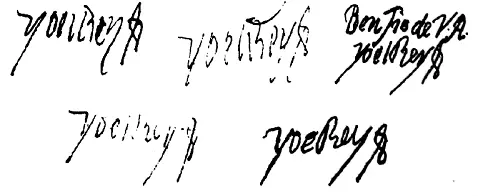 yo el Rey
yo el Rey
Ben Tio de V.A.
yo el Rey
yo el Rey
yo e Rey